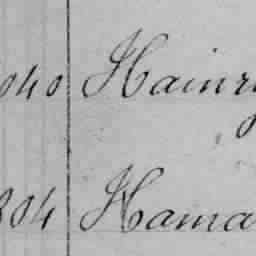 040 Hainry
804 Hama